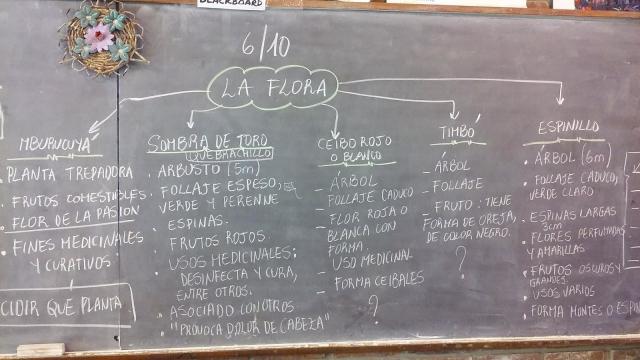 BLACKBOARD
6/10
LA FLORA
MBURUCUYÁ
PLANTA TREPADORA
FRUTOS COMESTIBLES
FLOR DE LA PASION
FINES MEDICINALES
Y CURATIVOS
CIDIR QUE PLANTA
SOMBRA DE TORO
QUEBRACHILLO
ARBUSTO (5m)
FOLLAJE ESPESO,
VERDE Y PERENNE
ESPINAS.
FRUTOS ROJOS.
USOS MEDICINALES:
DESINFECTA Y CURA,
ENTRE OTROS.
ASOCIADO CON OTROS
"PROVOCA DOLOR DE CABEZA"
CEIBO ROJO
O BLANCO
- ÁRBOL
- FOLLAJE CADUCO
- FLOR ROJA O
BLANCA CON
FORMA
- USO MEDICINAL
- FORMA CEIBALES
- ?
TIMBÓ
- ÁRBOL
- FOLLAJE
- FRUTO: TIENE
FORMA DE OREJA,
DE COLOR NEGRO.
?
ESPINILLO
• ÁRBOL (6m)
• FOLLAJE CADUCO,
VERDE CLARO
• ESPINAS LARGAS
3cm
• FLORES PERFUMADAS
Y AMARILLAS
• FRUTOS OSCUROS Y
GRANDES.
• USOS VARIOS
• FORMA MONTES O